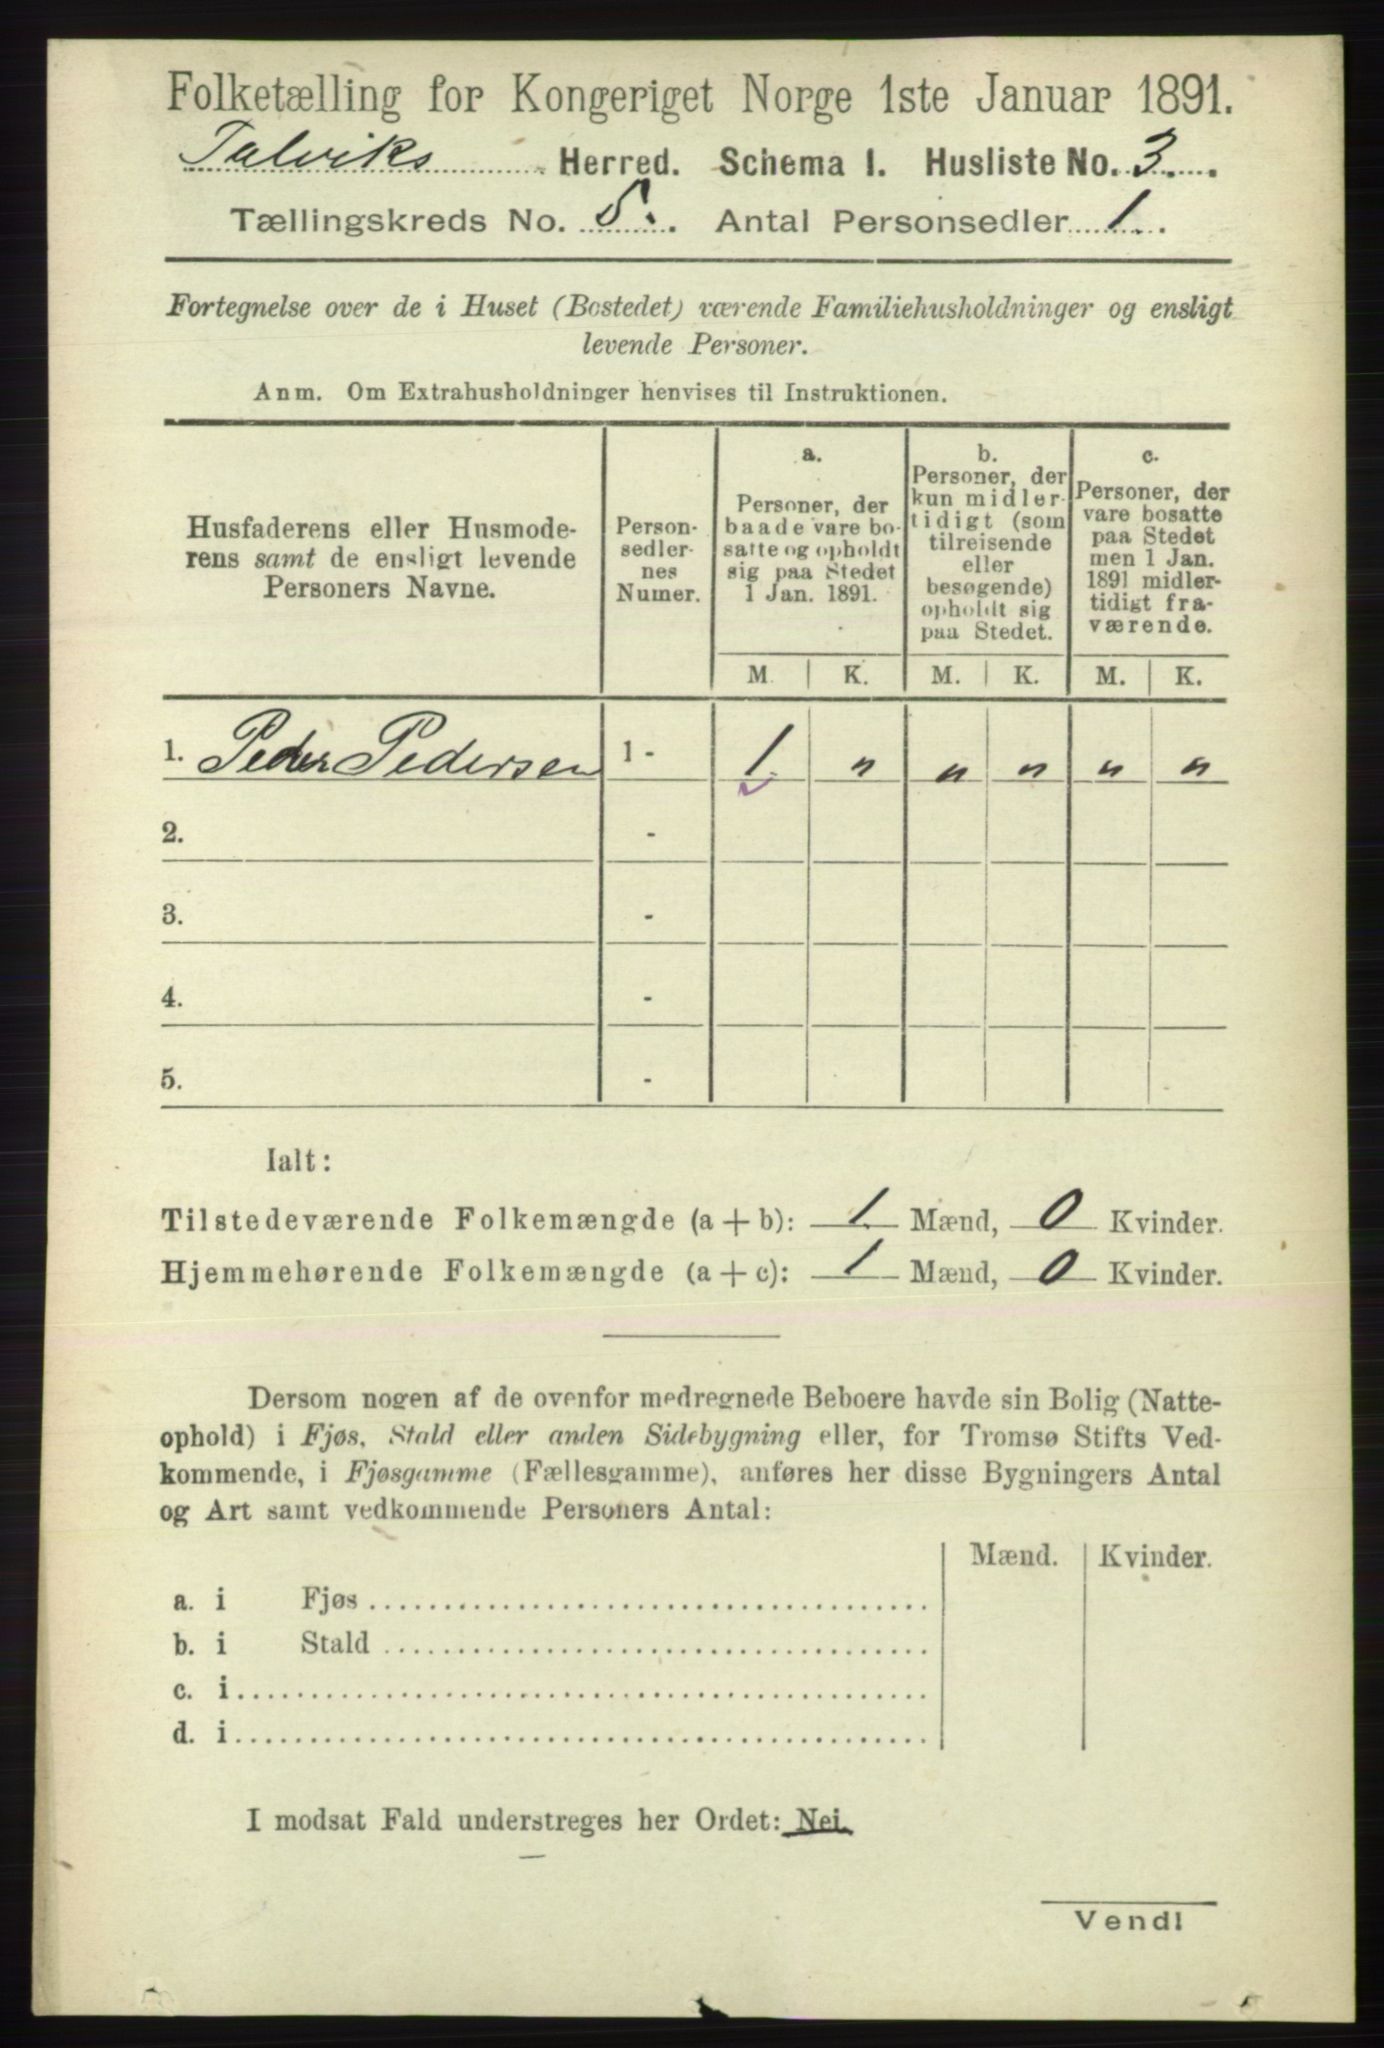 Folketælling for Kongeriget Norge 1ste Januar 1891.
Talviks Herred. Schema I. Husliste No. 3.
Tællingskreds No. 5. Antal Personsedler 1.
Fortegnelse over de i Huset (Bostedet) værende Familiehusholdninger og ensligt
levende Personer.
Anm. Om Extrahusholdninger henvises til Instruktionen.
Husfaderens eller Husmode-
rens samt de ensligt levende
Personers Navne.
Person-
sedler-
nes
Numer.
a.
Personer, der
baade vare bo-
satte og opholdt
sig paa Stedet
1 Jan. 1891.
b.
Personer, der
kun midler-
tidigt (som
tilreisende
eller
besøgende)
opholdt sig
paa Stedet.
c.
Personer, der
vare bosatte
paa Stedet
men 1 Jan.
1891 midler-
tidigt fra-
værende.
M. K. M. K. M. K.
1. Peder Pedersen 1 - 1 " " " " "
2. -
3. -
4. -
5. -
Ialt:
Tilstedeværende Folkemængde (a + b): 1 Mænd, 0 Kvinder.
Hjemmehørende Folkemængde (a + c): 1 Mænd, 0 Kvinder.
Dersom nogen af de ovenfor medregnede Beboere havde sin Bolig (Natte-
ophold) i Fjøs, Stald eller anden Sidebygning eller, for Tromsø Stifts Ved-
kommende, i Fjøsgamme (Fællesgamme), anføres her disse Bygningers Antal
og Art samt vedkommende Personers Antal:
Mænd. Kvinder.
a. i Fjøs
b. i Stald
c. i
d. i
I modsat Fald understreges her Ordet: Nei.
Vend!